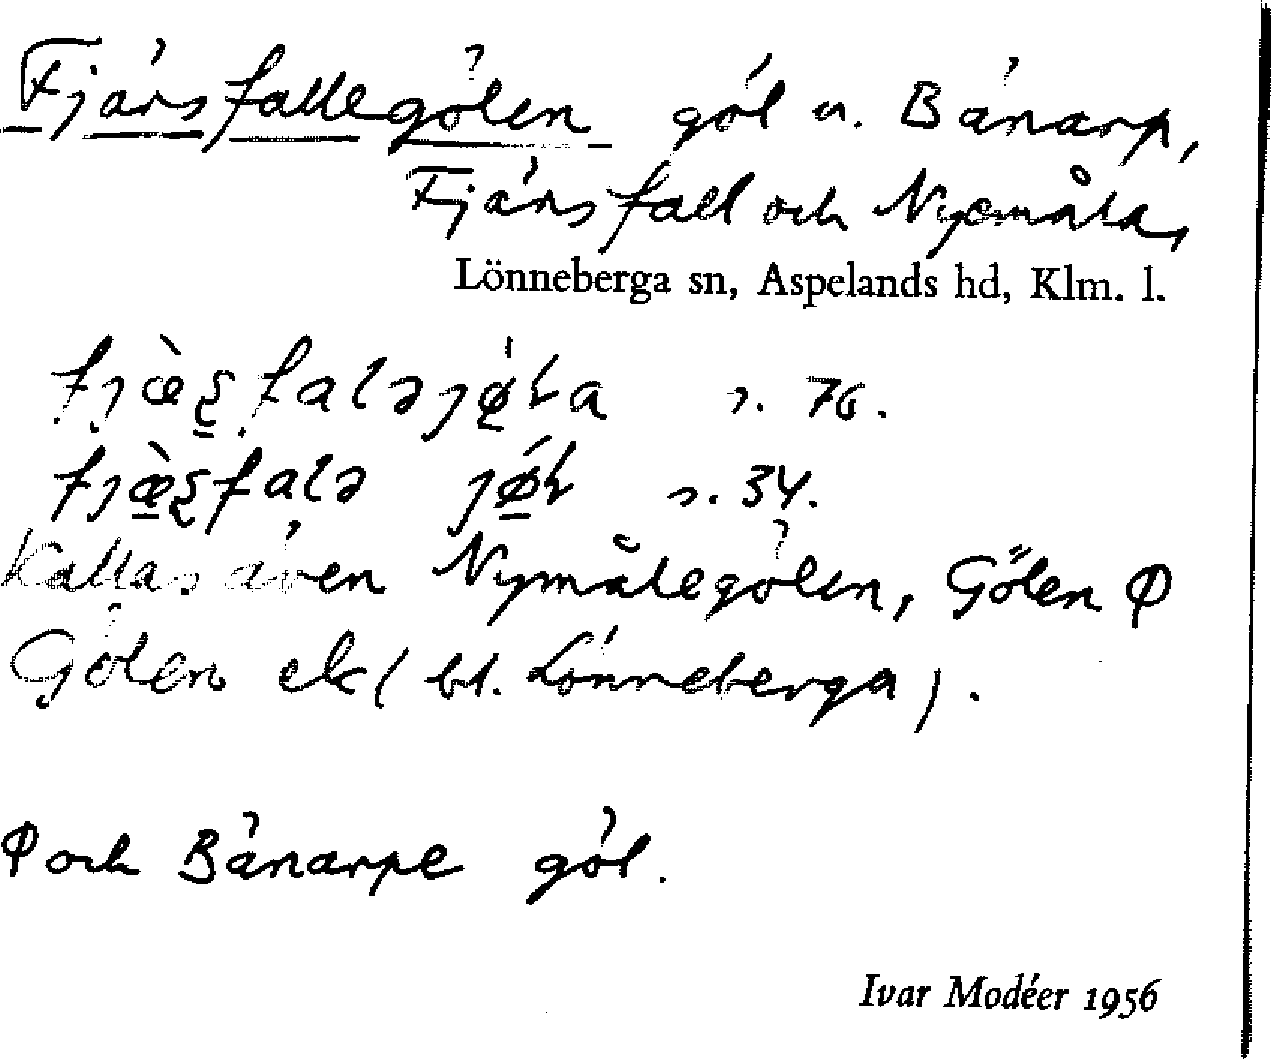 Fjärsfallegölen göl u. Bänarp,
Fjärsfall och Nyemåla,
Lönneberga sn, Aspelands hd, Klm. l.
s. 76.
s. 34.
Kallas även Nymålegölen, Gölen Φ
Gölen ek( bl. Lönneberga).
Φ och Bänarpe göl.
Ivar Modéer 1956